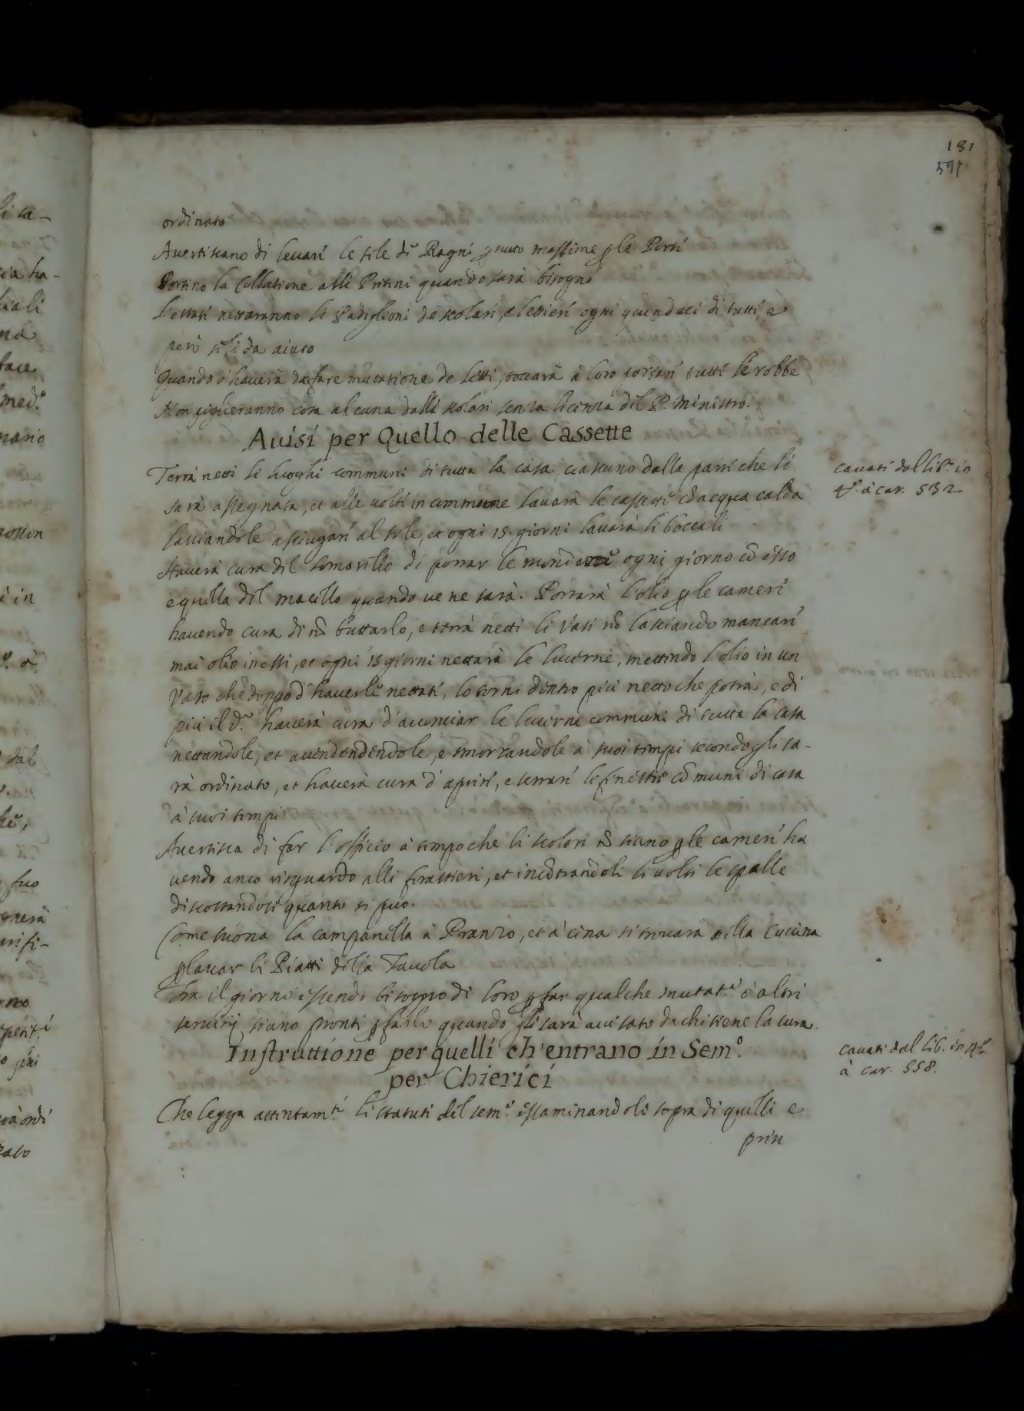 181
591
ordinato
Avertiscano di levare le tele di Ragni p tutto massime p le Porte
Portino la Collatione alli Putini quando sarà bisogno
nettaranno li Padiglioni de scolari, e lettieri ogni quindeci di tutti, e
però se li da aiuto
Quando s'haverà da fare mutatione de letti, toccarà à loro portare tutte le robbe
Non piglieranno cosa alcuna dalli scolari senza licenza del P. Ministro.
Avisi per Quello delle Cassette
Terrà netti li luoghi communi di tutta la casa ciascuno dalla parte che li
sarà assegnata, et alle volte in commune lavarà le cassette cō acqua calda
lasciandole asciugare al sole, et ogni 15 giorni lavarà li boccali
Haverà cura del somarello di portar le ogni giorno cō esso
e quella del macello quando ve ne sarà. Portarà l'olio p le camere
havendo cura di nō buttarlo, e terrà netti li vasi nō lasciando mancare
mai olio in essi, et ogni 15 giorni nettarà le lucerne, mettendo l'olio in un
vaso che doppo d'haverle nettate, lo torni dentro più netto che potrà, e di
più il dº haverà cura d'acconciar le lucerne communi di tutta la casa
nettandole, et accendendole, e smorzandole a suoi tempi secondo gli sa-
rà ordinato, et haverà cura d'aprire, e serrare le fenestre cōmuni di casa
à suoi tempi
Avertisca di far l'officio à tempo che li scolari nō siano p le camere ha
vendo anco risguardo alli forastieri, et incōtrandoli li volti le spalle
discostandosi quanto si può.
Come suona la campanella à Pranzo, et à cena si trovarà nella Cucina
p lavar li Piatti della Tavola
Fra il giorno essendo bisogno di loro p far qualche ò altri
servitij, siano pronti p farlo quando gli sarà avisato da chi tiene la cura.
Instruttione per quelli ch'entrano in Semº.
per Chierici
Che legga attentamte li statuti del semº essaminandole sopra di quelli e
prin
cavati dal lib. in
4º à car. 532
cavati dal lib. in 4º
à car. 558.